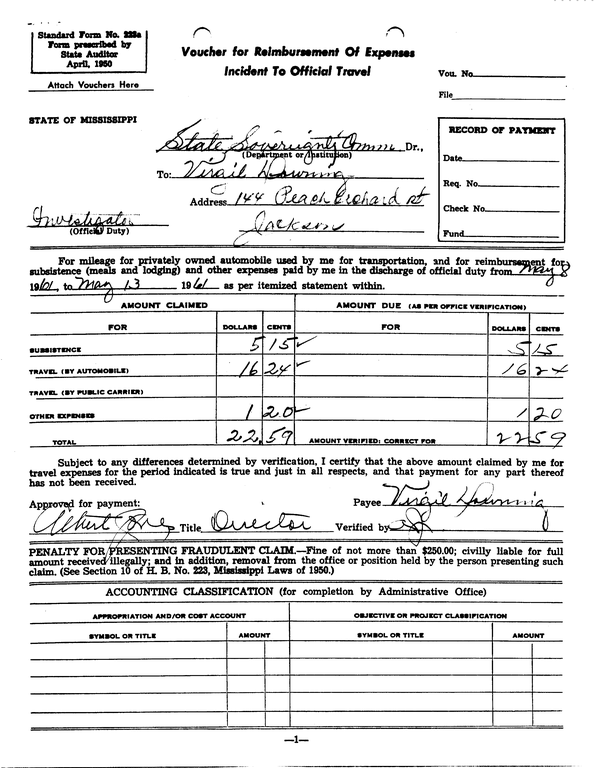 Standard Form No. 223a
Form prescribed by
State Auditor
April, 1950
Attach Vouchers Here
Voucher for Reimbursement Of Expenses
Incident To Official Travel
Vou. No.
File
STATE OF MISSISSIPPI
State Sovereignty Comm Dr.,
(Department or Institution)
To: Virgil Downing
Address 144 Peach Orchard Rd
Jackson
Investigator
(Official Duty)
RECORD OF PAYMENT
Date
Req. No.
Check No.
Fund
For mileage for privately owned automobile used by me for transportation, and for reimbursement for
subsistence (meals and lodging) and other expenses paid by me in the discharge of official duty from May 8
1961, to May 13 1961 as per itemized statement within.
AMOUNT CLAIMED AMOUNT DUE (AS PER OFFICE VERIFICATION)
FOR DOLLARS CENTS FOR DOLLARS CENTS
SUBSISTENCE 5 15 5 15
TRAVEL (BY AUTOMOBILE) 16 24 16 24
TRAVEL (BY PUBLIC CARRIER)
OTHER EXPENSES 1 20 1 20
TOTAL 22.59 AMOUNT VERIFIED: CORRECT FOR 22 59
Subject to any differences determined by verification, I certify that the above amount claimed by me for
travel expenses for the period indicated is true and just in all respects, and that payment for any part thereof
has not been received.
Approved for payment: Payee Virgil Downing
Albert Jones Title Director Verified by
PENALTY FOR PRESENTING FRAUDULENT CLAIM.—Fine of not more than $250.00; civilly liable for full
amount received illegally; and in addition, removal from the office or position held by the person presenting such
claim. (See Section 10 of H. B. No. 223, Mississippi Laws of 1950.)
ACCOUNTING CLASSIFICATION (for completion by Administrative Office)
APPROPRIATION AND/OR COST ACCOUNT OBJECTIVE OR PROJECT CLASSIFICATION
SYMBOL OR TITLE AMOUNT SYMBOL OR TITLE AMOUNT
—1—